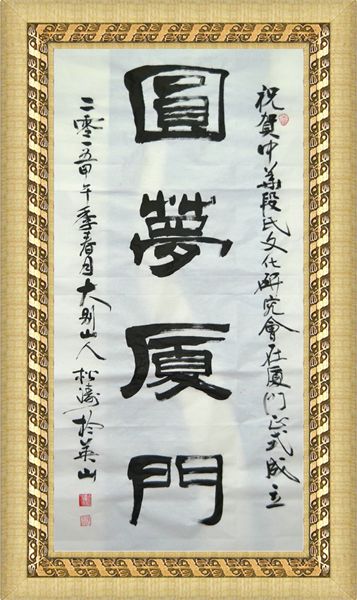 祝賀中華段氏文化研究會在厦门正式成立
圓夢厦門
二零一五甲午季春月大别山人松濤於英山